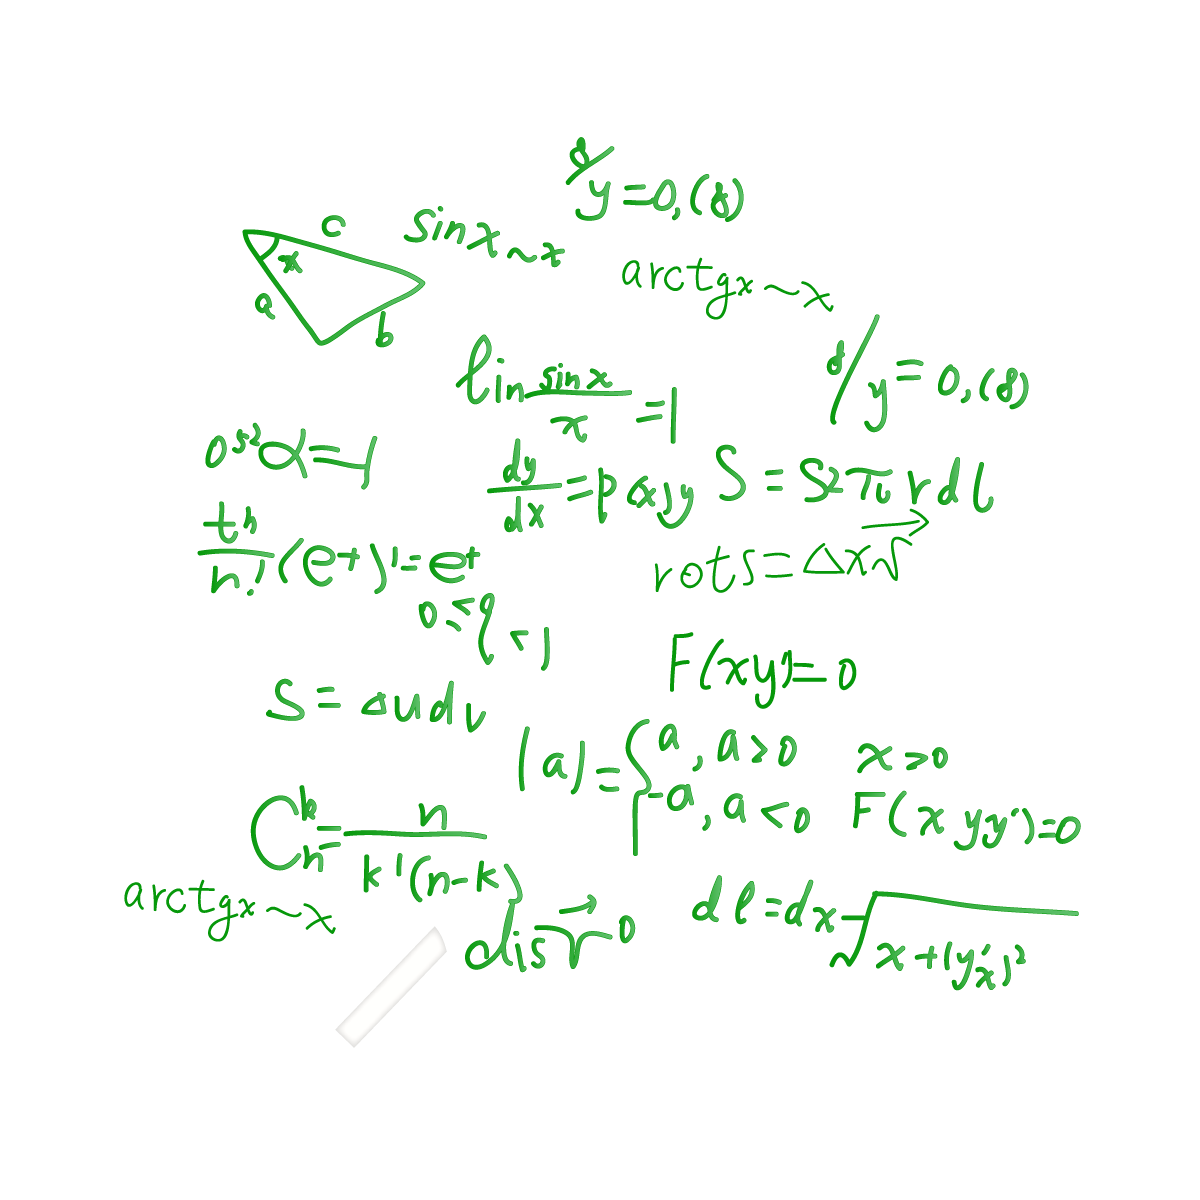 8/y=0,(8)
c
sinx~x
x
a
b
arctgx~x
lin sinx/x =1
8/y=0,(8)
0s²α=1
dy/dx=p(x)y
S=S2πrdl
t^n/n! (e^t)'=e^t
rots=Δx
0≤q<1
F(xy')=0
S=Δudv
|a|={a, a>0
-a, a<0
x>0
F(xyy')=0
C_n^k=n/k!(n-k)
arctgx~x
dl=dx√x+(y'x)²
dis
0